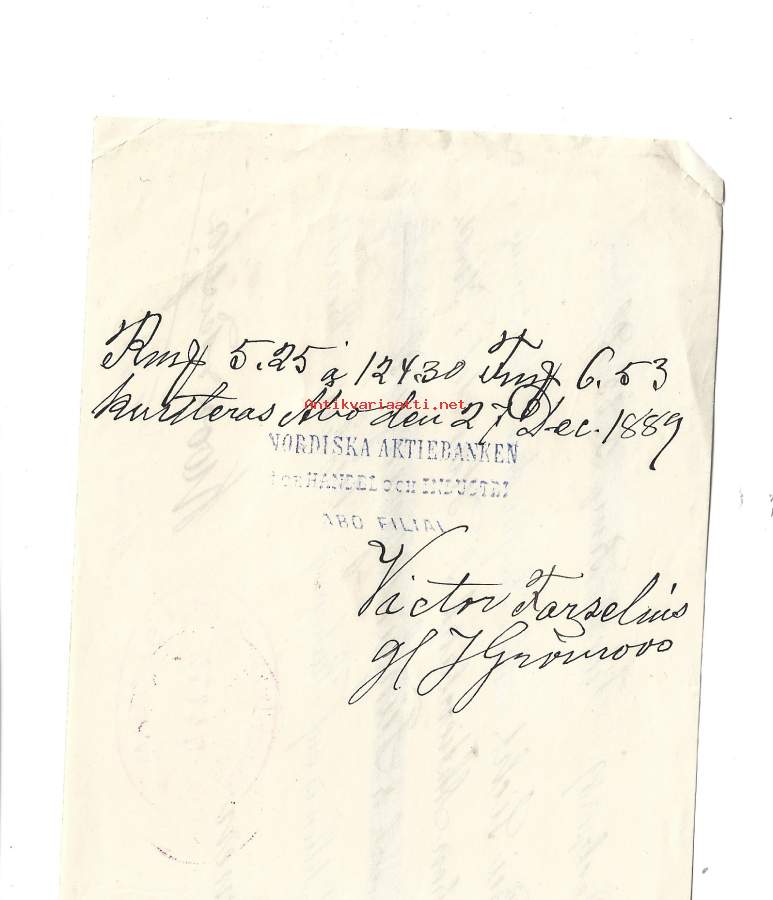 Rmf 5.25 à 124.30 Fmf 6.53
kvitteras Åbo den 27 Dec. 1889
Antikvariaatti.net
NORDISKA AKTIEBANKEN
FÖR HANDEL OCH INDUSTRI
ÅBO FILIAL
Victor Forselius
J Grönroos